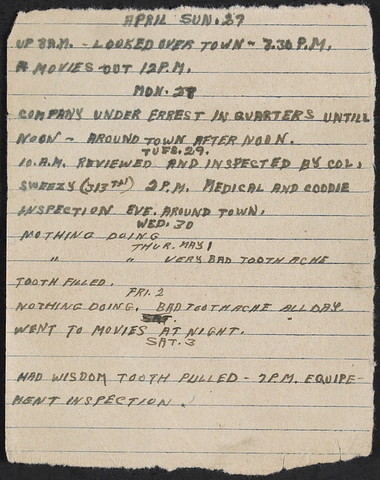 APRIL SUN. 27
UP 8 A.M. - LOOKED OVER TOWN - 7.30 P.M.
MOVIES OUT 12 P.M.
MON. 28
COMPANY UNDER ERREST IN QUARTERS UNTILL
NOON - AROUND TOWN AFTER NOON.
TUES. 29.
10. A.M. REVIEWED AND INSPECTED BY COL.
SWEEZY (313TH) 2 P.M. MEDICAL AND COODIE
INSPECTION EVE. AROUND TOWN.
WED. 30
NOTHING DOING
THUR. MAY 1
" " VERY BAD TOOTH ACHE
TOOTH FILLED.
FRI. 2
NOTHING DOING. BAD TOOTHACHE ALL DAY.
SAT.
WENT TO MOVIES AT NIGHT.
SAT. 3
HAD WISDOM TOOTH PULLED - 7 P.M. EQUIPE-
MENT INSPECTION.